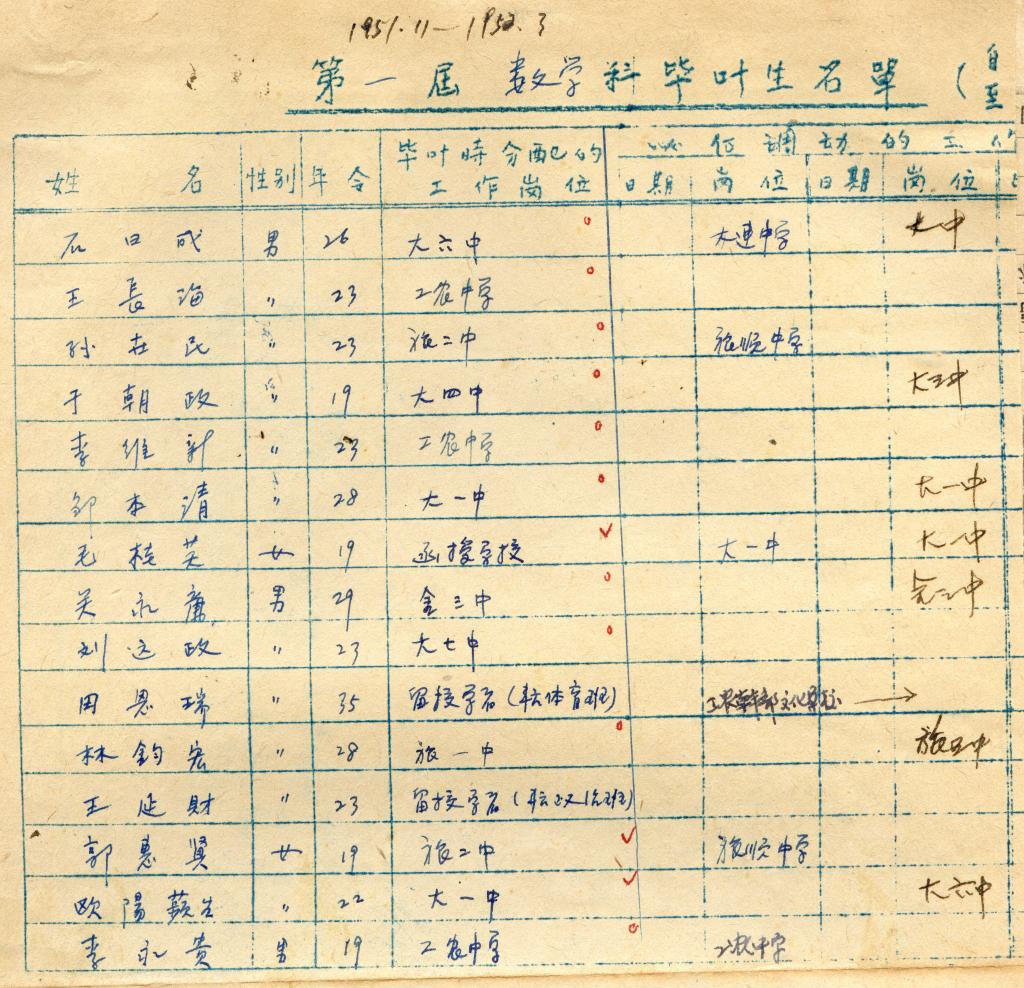 1951.11—1952.3
第一届 数学科毕叶生名單（自
至
姓名 性别 年令 毕叶時分配的工作岗位 以后调动的工作
日期 岗位 日期 岗位
石日成 男 26 大六中 大連中学 大中
王長海 〃 23 工农中学
孙在民 〃 23 旅二中 旅顺中学
于朝政 〃 19 大四中 大三中
李維新 〃 23 工农中学
邹本清 〃 28 大一中 大一中
毛桂芙 女 19 函授学校 大一中 大八中
关永庸 男 29 金三中
刘远政 〃 23 大七中
田恩瑞 〃 35 留校学石（転体育班） 工农幹部文化学校 →
林鈞宏 〃 28 旅一中 旅五中
王延財 〃 23 留校学石（転政治班）
郭惠贤 女 19 旅二中 旅顺中学
欧陽蘋生 〃 22 大一中 大六中
李永贵 男 19 工农中学 工农中学